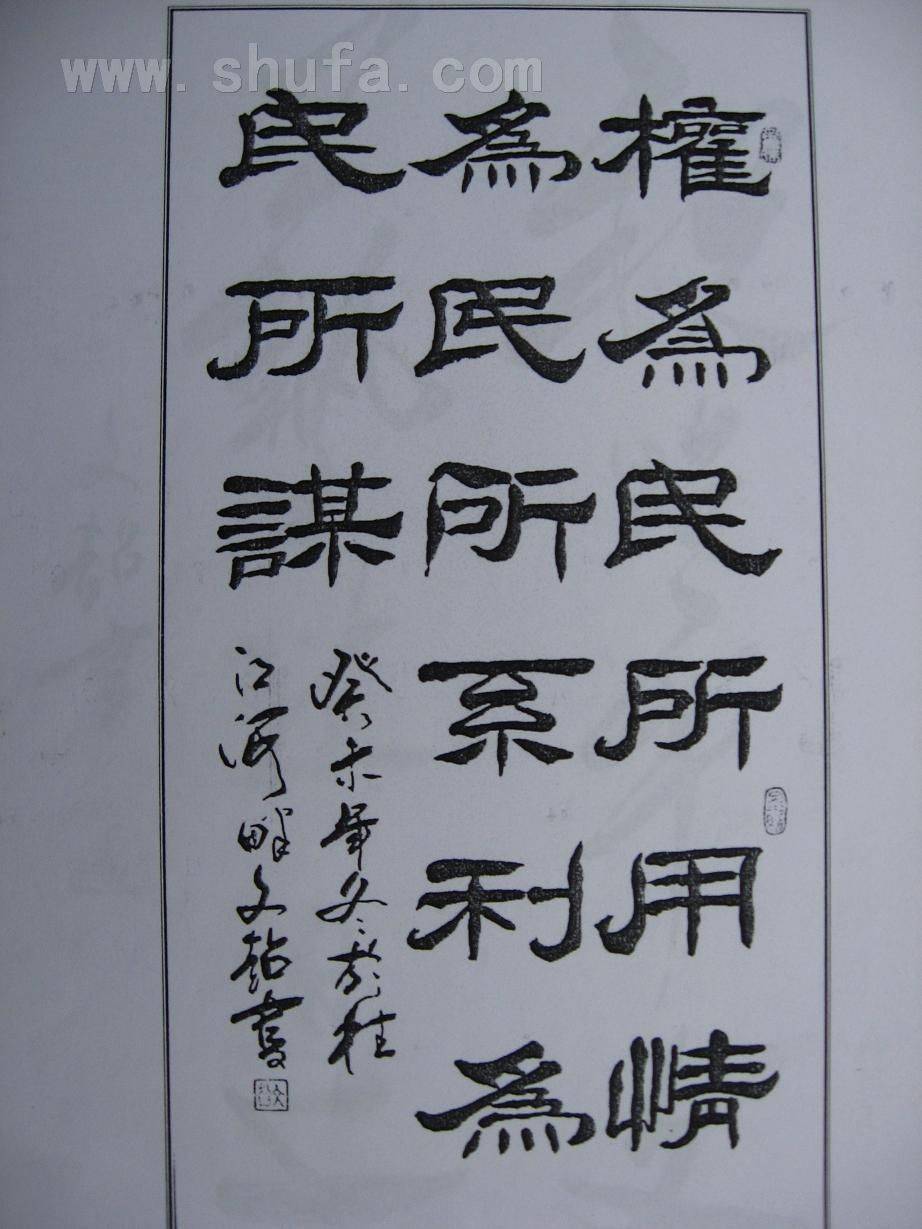 www.shufa.com
權為民所用情
為民所系利為
民所謀
癸未年冬於桂
江河畔文韜書